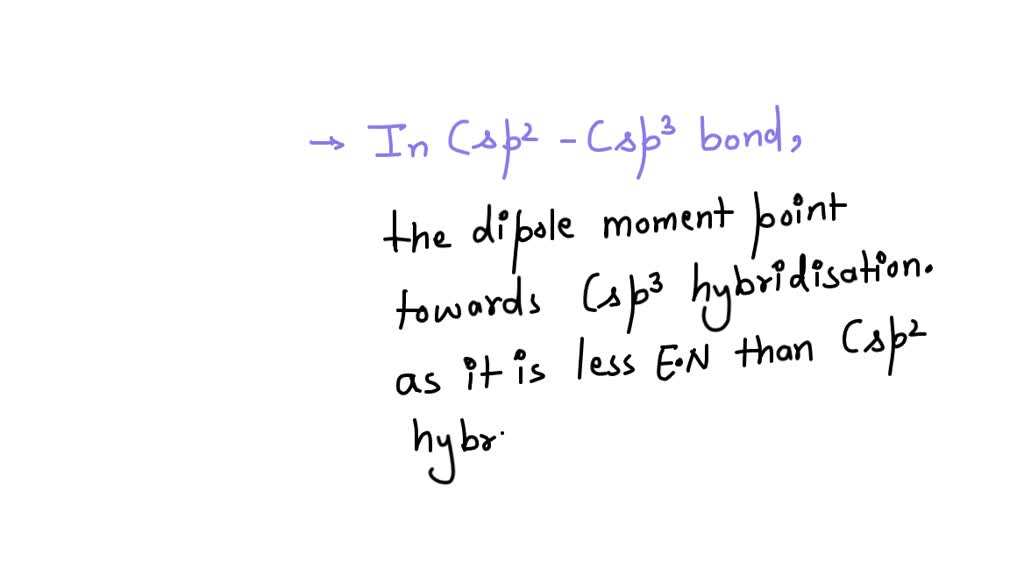 → In Csp² - Csp³ bond,
the dipole moment point
towards Csp³ hybridisation.
as it is less E.N than Csp²
hybr